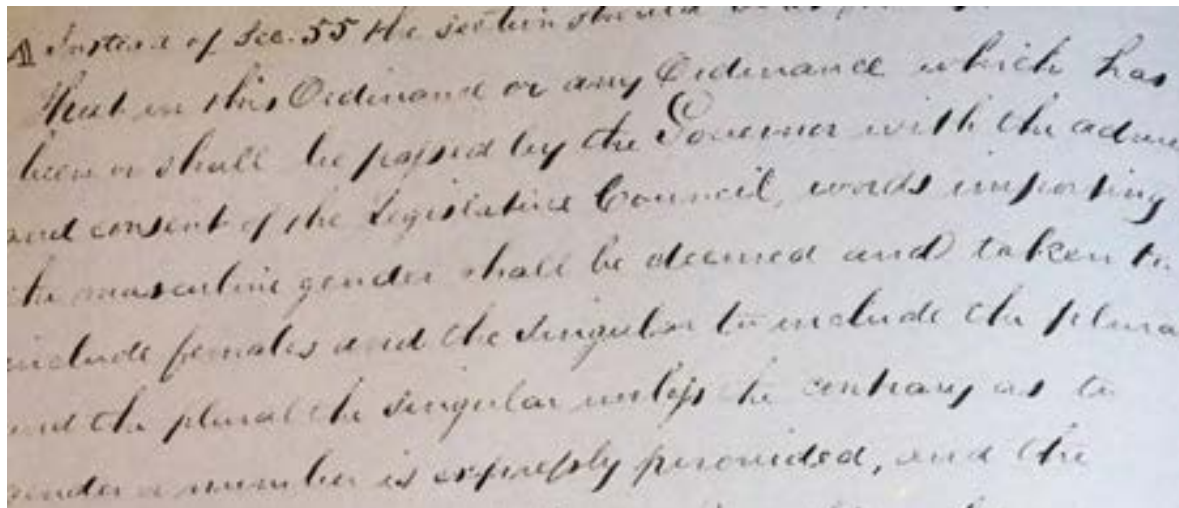 A Instead of Sec. 55 the section should
That in this Ordinance or any Ordinance which has
been or shall be passed by the Governor with the advice
and consent of the Legislative Council, words importing
the masculine gender shall be deemed and taken to
include females and the singular to include the plural
and the plural the singular unless the contrary as to
gender or number is expressly provided, and the